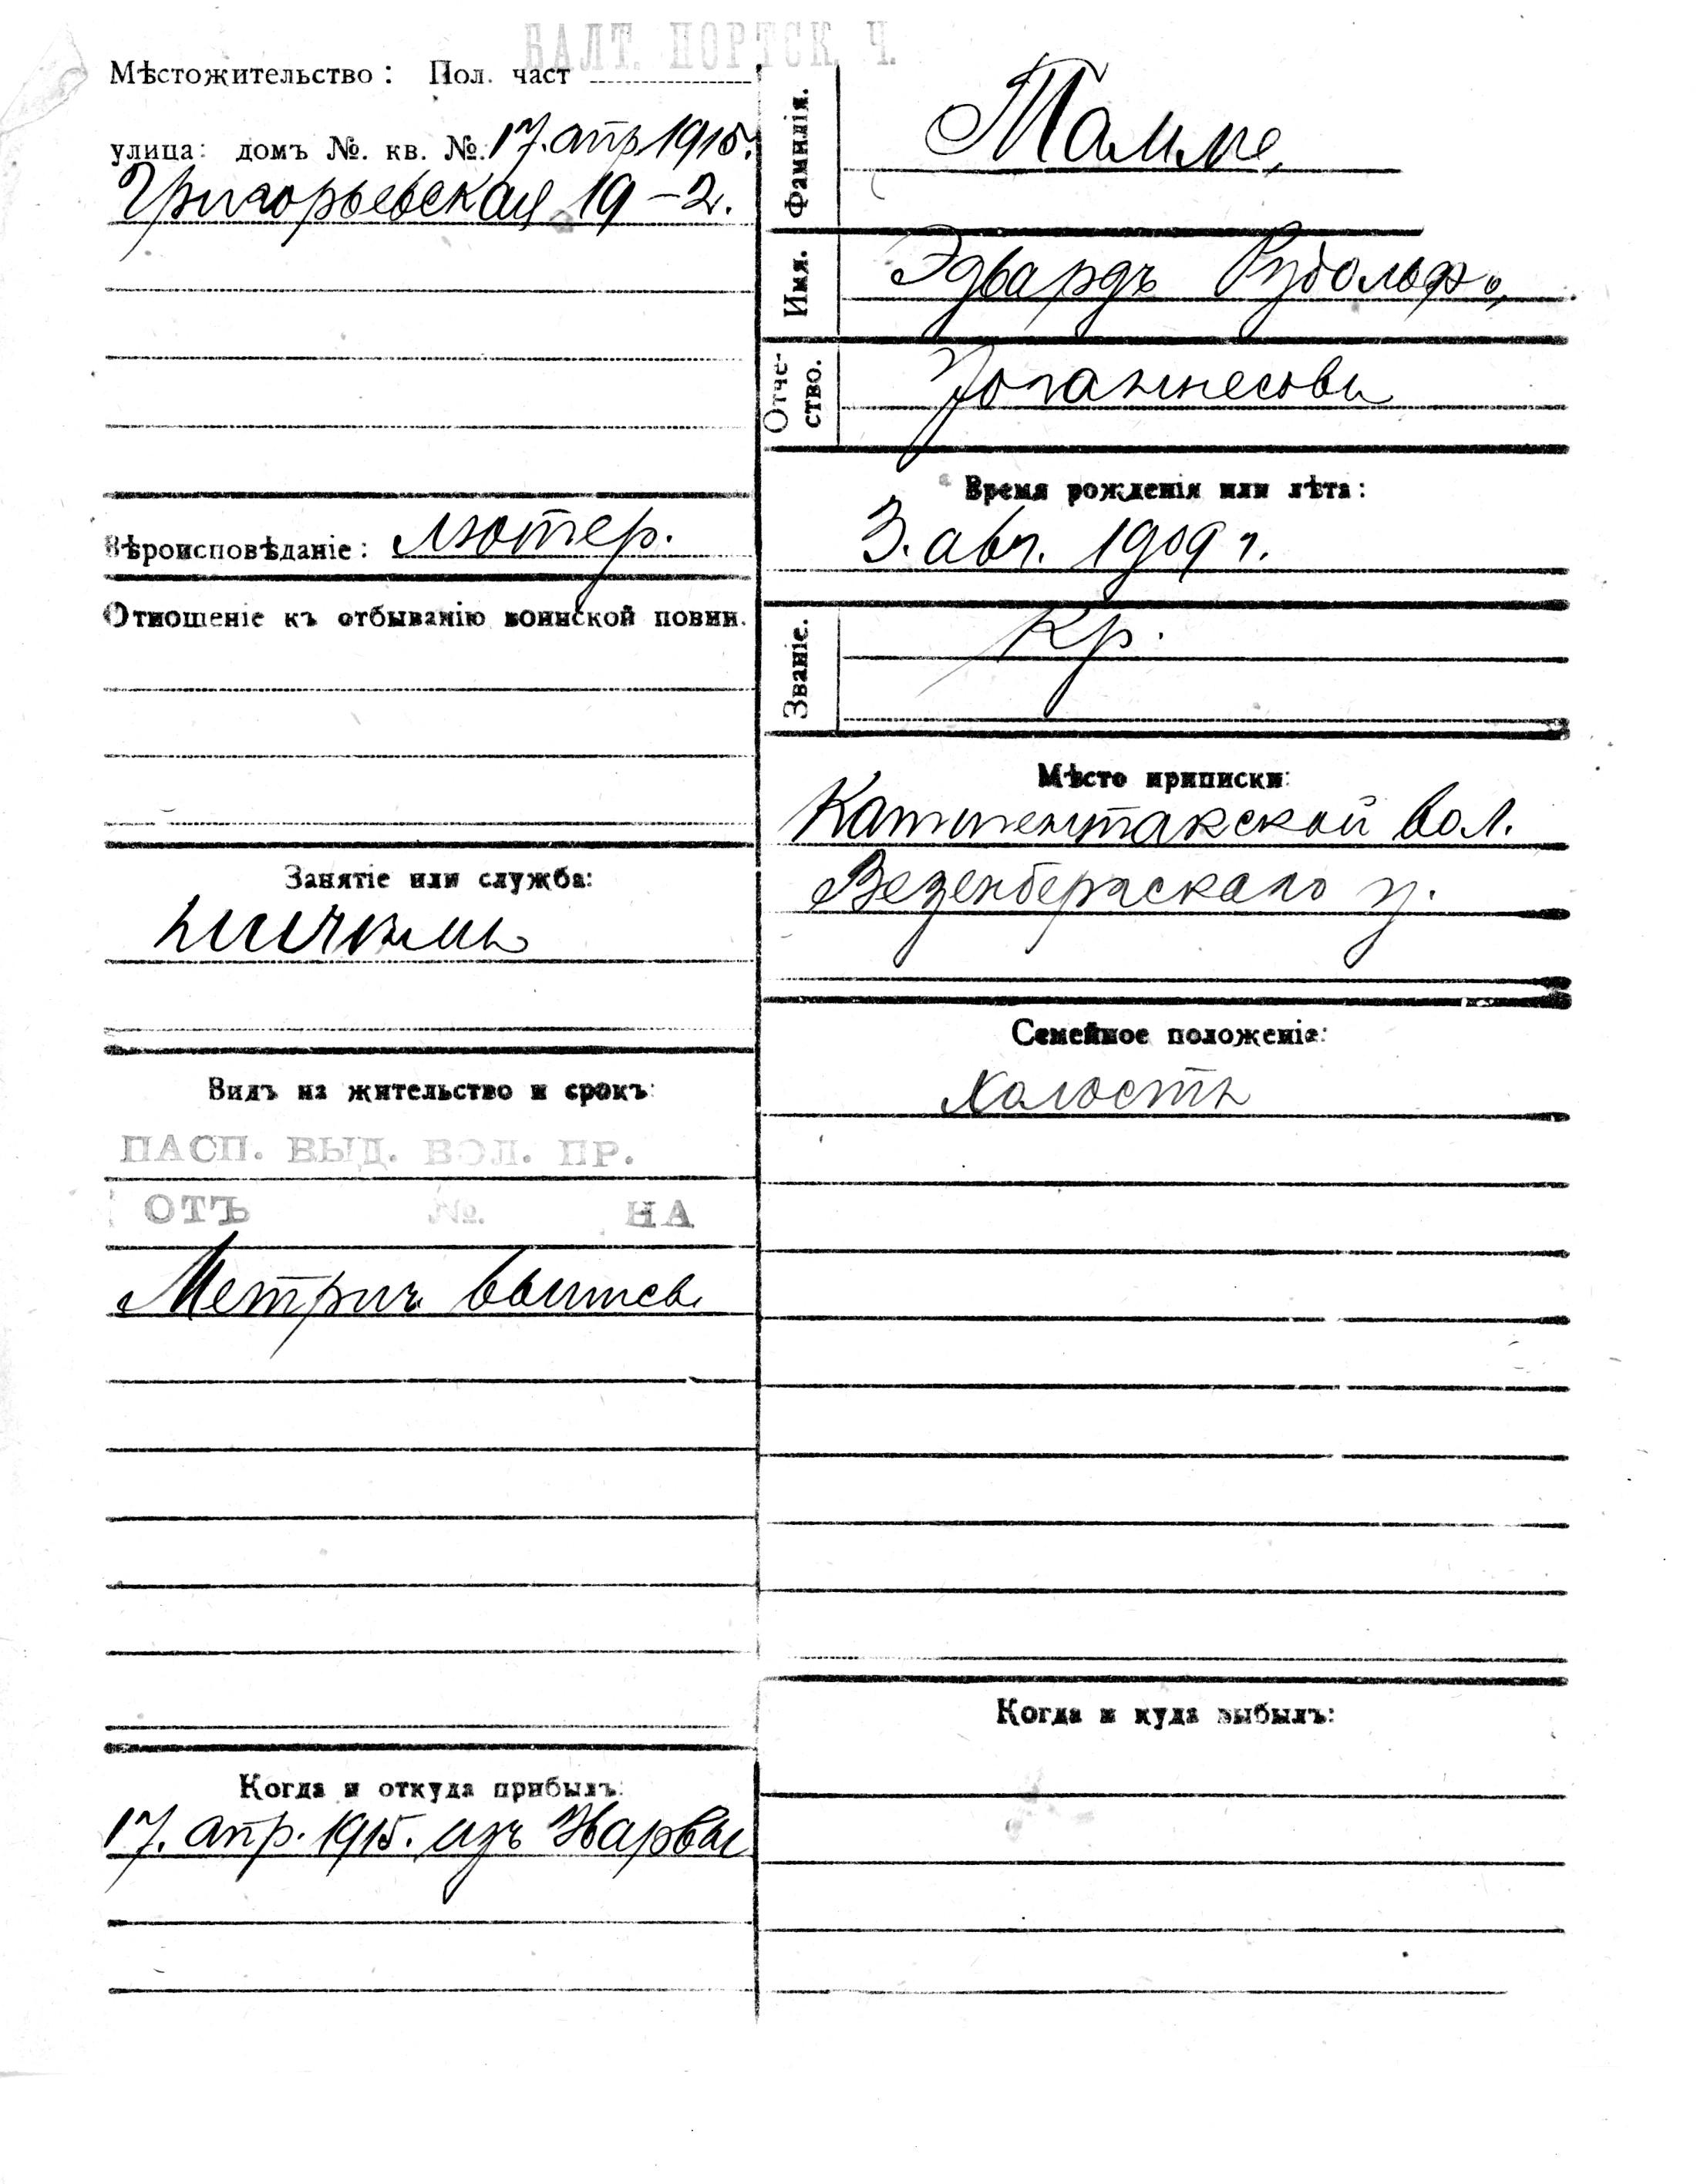 БАЛТ. ПОРТСК. Ч.
Мѣстожительство: Пол. част
улица: домъ №. кв. №. 17. апр. 1915.
Григорьевская 19-2.
Вѣроисповѣданіе: лютер.
Отношеніе къ отбыванію воинской повин.
Занятіе или служба:
Видъ на жительство и срокъ:
ПАСП. ВЫД. ВОЛ. ПР.
ОТЪ №. НА
Метрич. выпись
Когда и откуда прибылъ:
17. апр. 1915. изъ Нарвы
Фамилія. Тамме,
Имя. Эдвардъ Рудольфъ,
Отче-
ство. Іоганнесовъ
Время рожденія или лѣта:
3. авг. 1909 г.
Званіе. Кр.
Мѣсто приписки:
Каттентакской вол.
Везенбергскаго у.
Семейное положеніе:
холостъ
Когда и куда выбылъ: